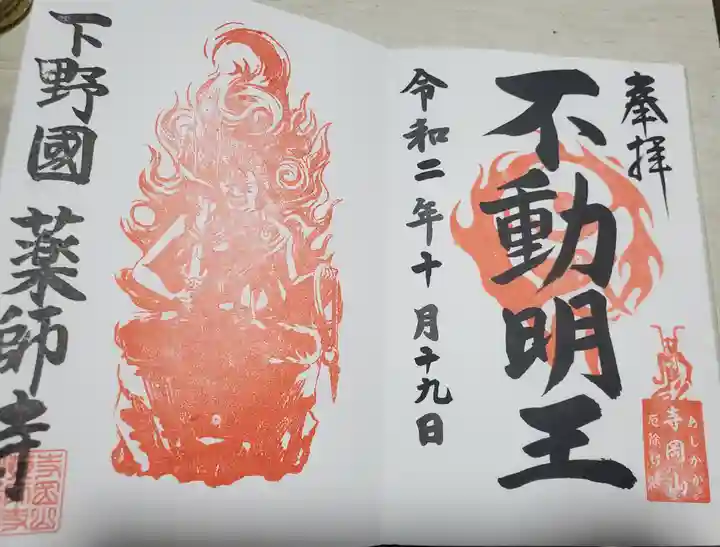 奉拝
不動明王
令和二年十月十九日
下野國 薬師寺
あしかが
寺岡山
厄除け